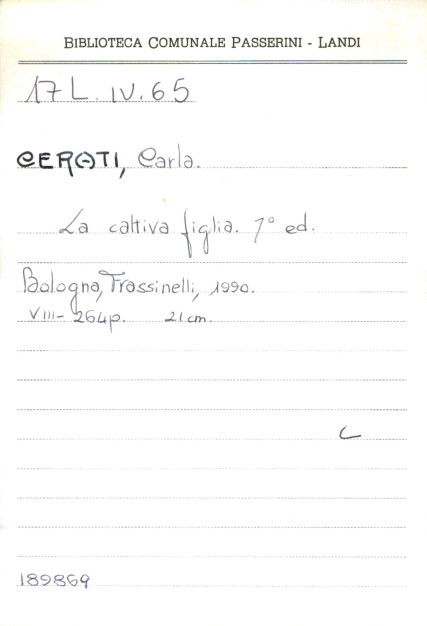 BIBLIOTECA COMUNALE PASSERINI - LANDI
17 L. IV. 65
CERATI, Carla.
La cattiva figlia. 1° ed.
Bologna, Frassinelli, 1990.
VIII- 264p. 21 cm.
C
189869